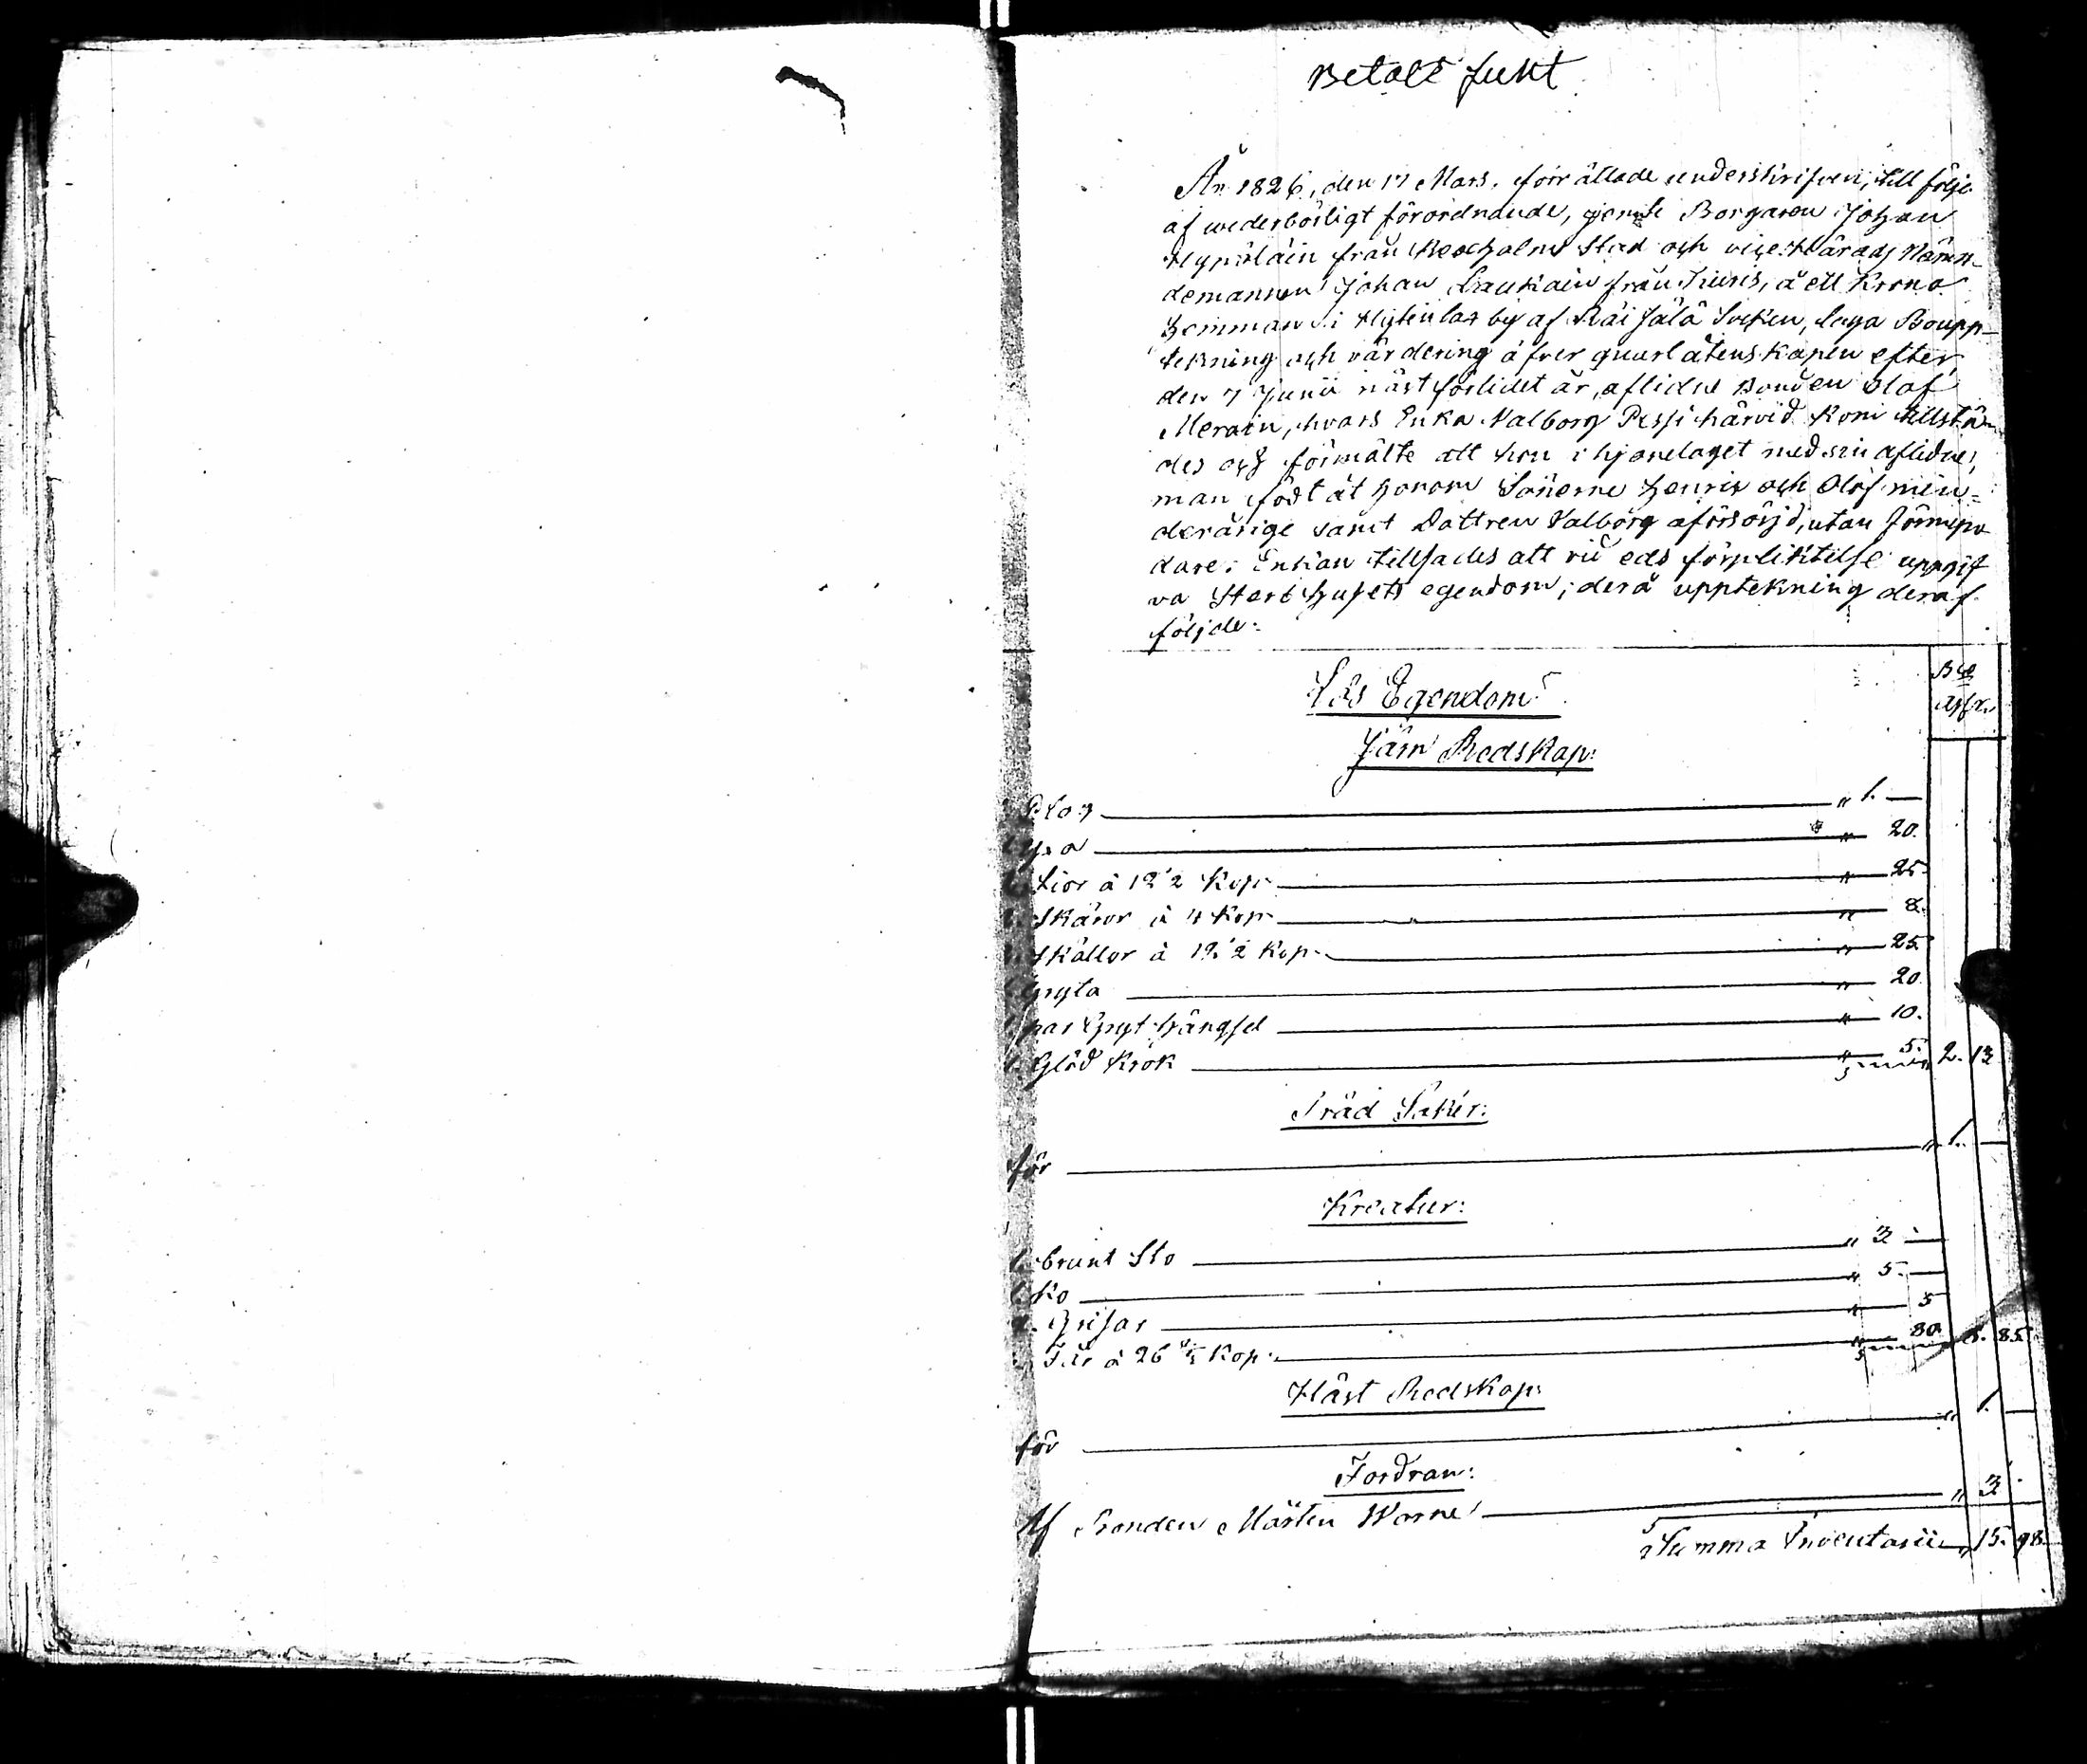 Betalt fukt
År 1826, den 17 Mars, förrättade underskrifven, till följe
af wederbörligt förordnande, jemte Borgaren Johan
Hypöläin från Kexholms Stad och vice Härads Nämn-
demannen Johan Laukain från Tiuris, å ett Krono
hemman i Hytinlax by af Räisälä Socken, laga Boupp-
tekning och värdering öfver quarlåtenskapen efter
den 7 Junii näst förlidet år, aflidne Bonden Olof
Merain, hvars Enka Valborg Pessi härvid kom tillstä-
des och förmälte att hon i hjonelaget med sin aflidne
man födt åt honom Sönerne Henrik och Olof min-
derårige samt Dottren Valborg oförsörjd, utan förmyn
dare. Enkan tillsades att vid eds förpliktelse uppgif
va Sterbhusets egendom; derå upptekning deraf
följde.
Lös Egendom
Järn Redskap:
Plog " 1. —
Yxa " 20.
Lior à 12 1/2 Kop. " 25.
Skäror à 4 Kop. " 8.
Skällor à 12 1/2 Kop. " 25.
1. Gryta " 20.
1. par Gryt hängsel " 10.
1. Glöd Krok " 5. 2. 13
Träd Saker:
för " 1. —
Kreatur:
1. brunt Sto " 3 —
1. Ko " 5. —
2. Grisar " 5
Får à 26 2/3 Kop. " 80. 8. 85.
Häst Redskap:
för " 1. —
Fordran:
Af Bonden Mårten Warne " 3 .
Summa Inventarii " 15. 98.